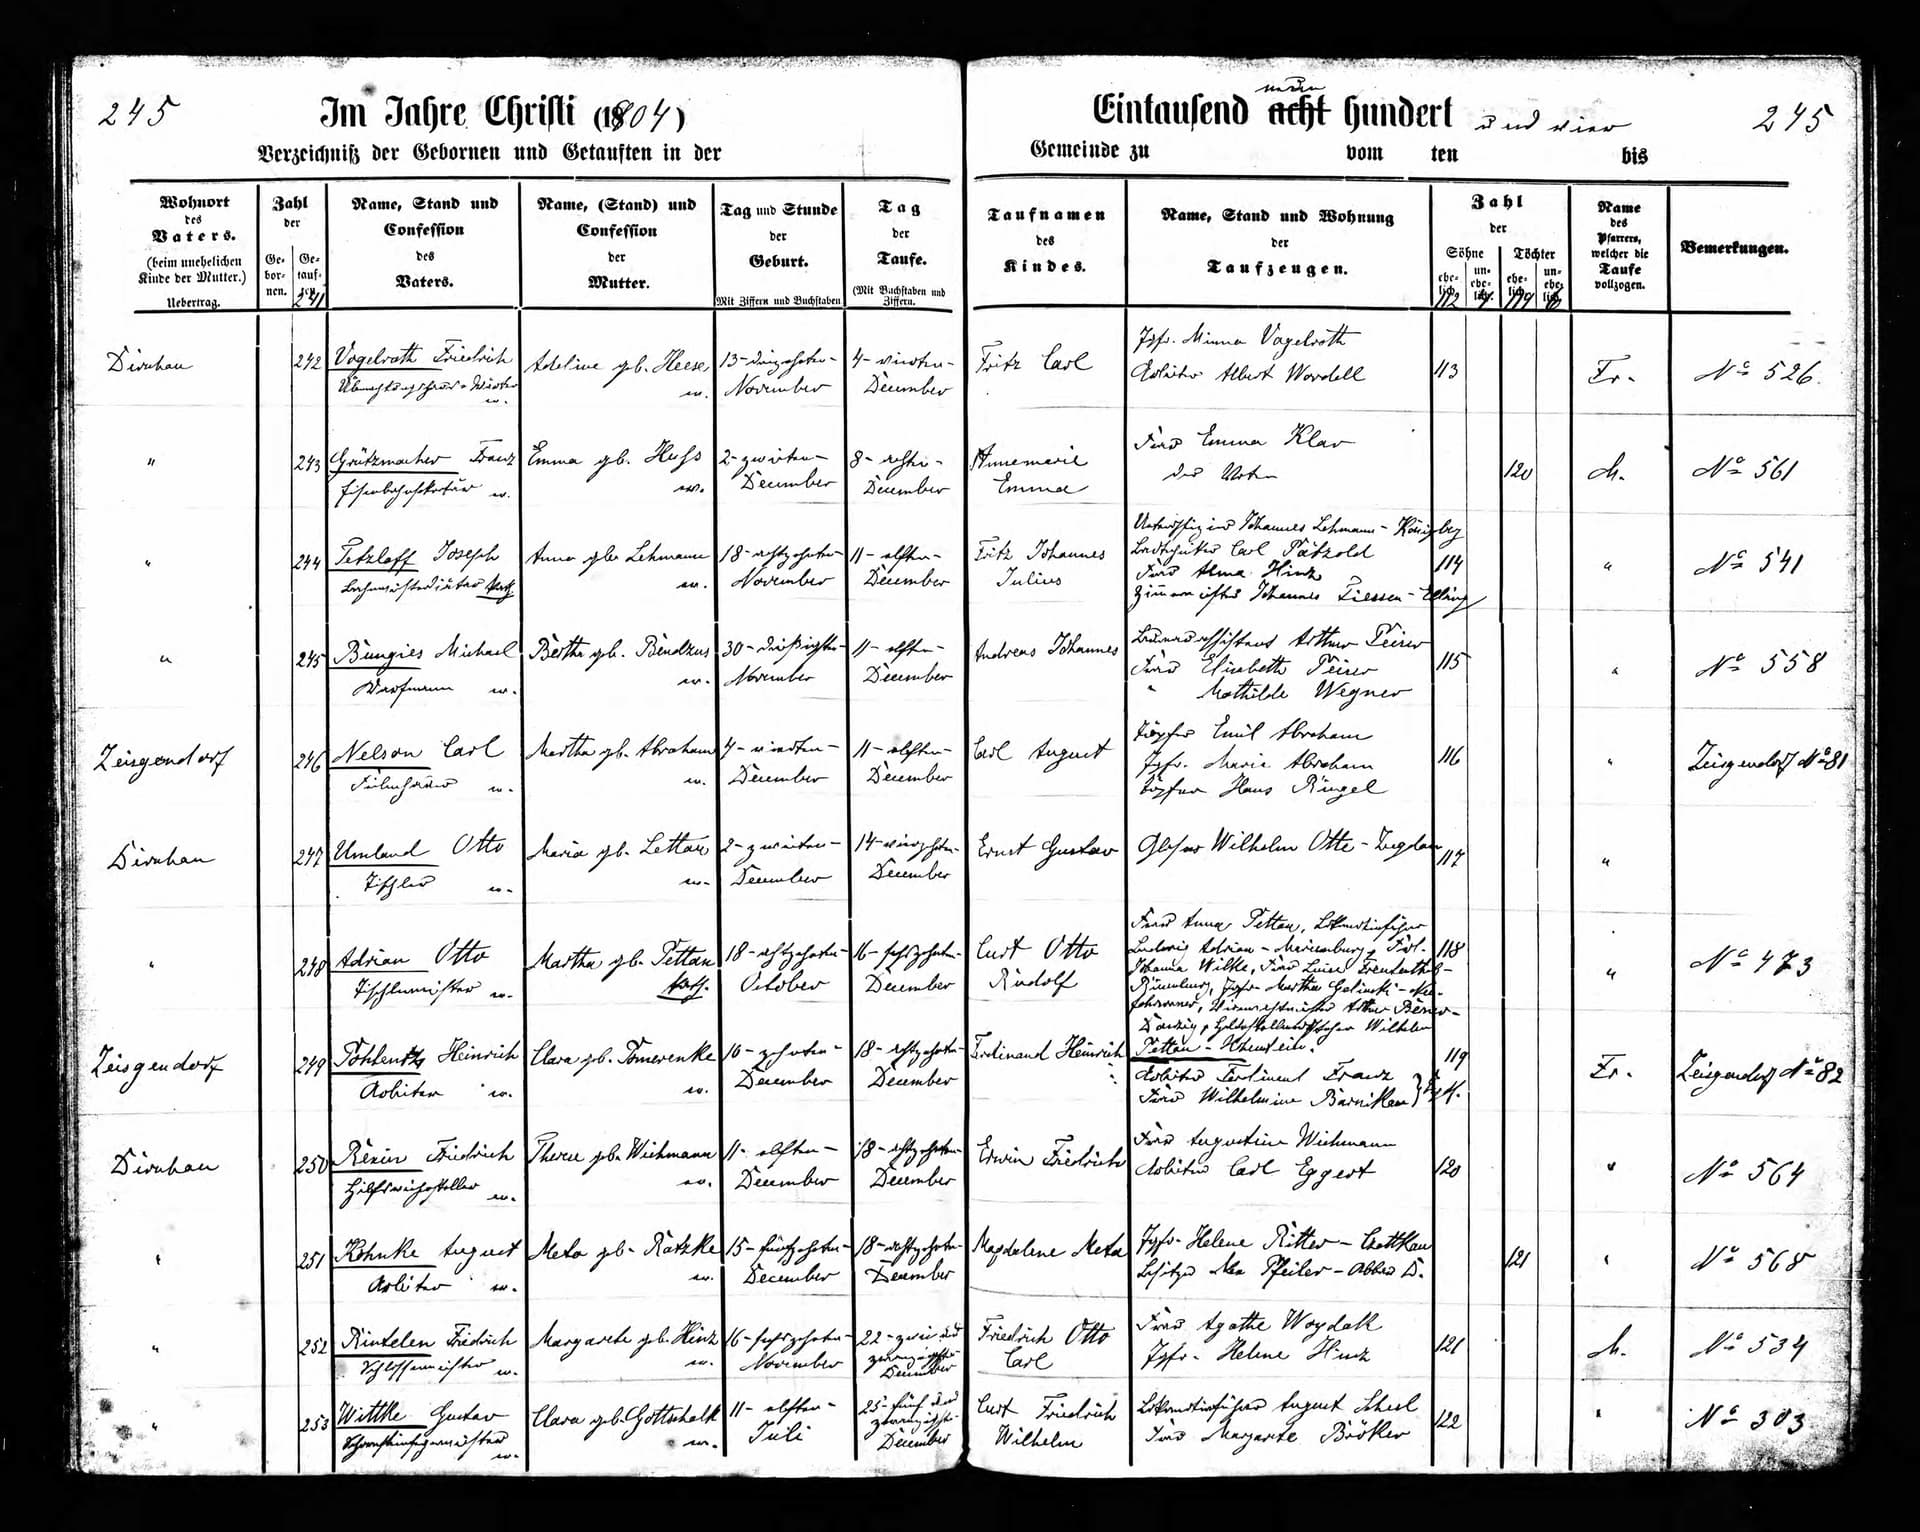 245
Im Jahre Christi (1904)
Verzeichniß der Gebornen und Getauften in der
Wohnort des Vaters. (beim unehelichen Kinde der Mutter.) Uebertrag.
Zahl der Gebornen. Getauften. 241
Name, Stand und Confession des Vaters.
Name, (Stand) und Confession der Mutter.
Tag und Stunde der Geburt. Mit Ziffern und Buchstaben
Tag der Taufe. (Mit Buchstaben und Ziffern.
Eintausend acht neun hundert und vier
245
Gemeinde zu vom ten bis
Taufnamen des Kindes.
Name, Stand und Wohnung der Taufzeugen.
Zahl der
Söhne ehelich. 112 unehelich. 4
Töchter ehelich. 119 unehelich. 6
Name des Pfarrers, welcher die Taufe vollzogen.
Bemerkungen.
Dirschau 242 Vogelroth Friedrich Adeline geb. Heese 13 - dreizehnten - 4 - vierten - Fritz Carl Jgfr. Minna Vogelroth
ev. ev. November December Arbeiter Albert Wordell 113 Fr. No 526.
" 243 Grützmacher Franz Emma geb. Huss 2 - zweiten - 8 - achten - Annemarie Frau Emma Klar
ev. ev. December December Emma 120 M. No 561
" 244 Petzlaff Joseph Anna geb. Lehmann 18 - achtzehnten - 11 - elften - Fritz Johannes Johannes Lehmann - Königsberg
kath. ev. November December Julius Carl Pätzold
Frau Alma Hinz 114 " No 541
Johannes Tiessen - Elbing
" 245 Bungies Michael Bertha geb. Bendzus 30 - dreißigsten - 11 - elften - Andreas Johannes Arthur Peirer
Kaufmann ev. ev. November December Frau Elisabeth Peirer 115 " No 558
" Mathilde Wegner
Zeisgendorf 246 Nelson Carl Martha geb. Abraham 4 - vierten - 11 - elften - Carl August Töpfer Emil Abraham
ev. ev. December December Jgfr. Maria Abraham 116 " Zeisgendorf No 81
Töpfer Hans Ringel
Dirschau 247 Umland Otto Maria geb. Lettau 2 - zweiten - 14 - vierzehnten - Ernst Gustav Glaser Wilhelm Otte - 117 "
Tischler ev. ev. December December
" 248 Adrian Otto Martha geb. Pettau 18 - achtzehnten - 16 - sechzehnten - Curt Otto Frau Anna Pettau, Lokomotivführer
Tischlermeister ev. kath. October December Rudolf Ludwig Adrian - Marienburg, Frl. 118 " No 473
Johanna Wilke, Frau Luise
Jgfr. Martha Gelinski -
Arthur
Danzig, Wilhelm
Pettau -
Zeisgendorf 249 Pohlentz Heinrich Clara geb. Pomerenke 10 - zehnten - 18 - achtzehnten - Ferdinand Heinrich 119 Fr. Zeisgendorf No 82
Arbeiter ev. ev. December December Arbeiter Ferdinand Franz
Frau Wilhelmine
Dirschau 250 Rexin Friedrich Therese geb. Wichmann 11 - elften - 18 - achtzehnten - Erwin Friedrich Frau Augustine Wichmann
Hilfsweichensteller ev. ev. December December Arbeiter Carl Eggert 120 " No 564
" 251 Kohnke August Meta geb. Ratzke 15 - fünfzehnten - 18 - achtzehnten - Magdalene Meta Jgfr. Helene Ritter -
Arbeiter ev. ev. December December Besitzer Max Pfeiler - 121 " No 568
" 252 Rintelen Friedrich Margarete geb. Hinz 16 - sechzehnten - 22 - zwei und zwanzigsten - Friedrich Otto Frau Agathe Woydak
Schlossermeister ev. ev. November December Carl Jgfr. Helene Hinz 121 M. No 534
" 253 Wittke Gustav Clara geb. Gottschalk 11 - elften - 25 - fünf und zwanzigsten - Curt Friedrich Lokomotivführer August Scheel
Schornsteinfegermeister ev. ev. Juli December Wilhelm Frau Margarete Brötker 122 " No 303